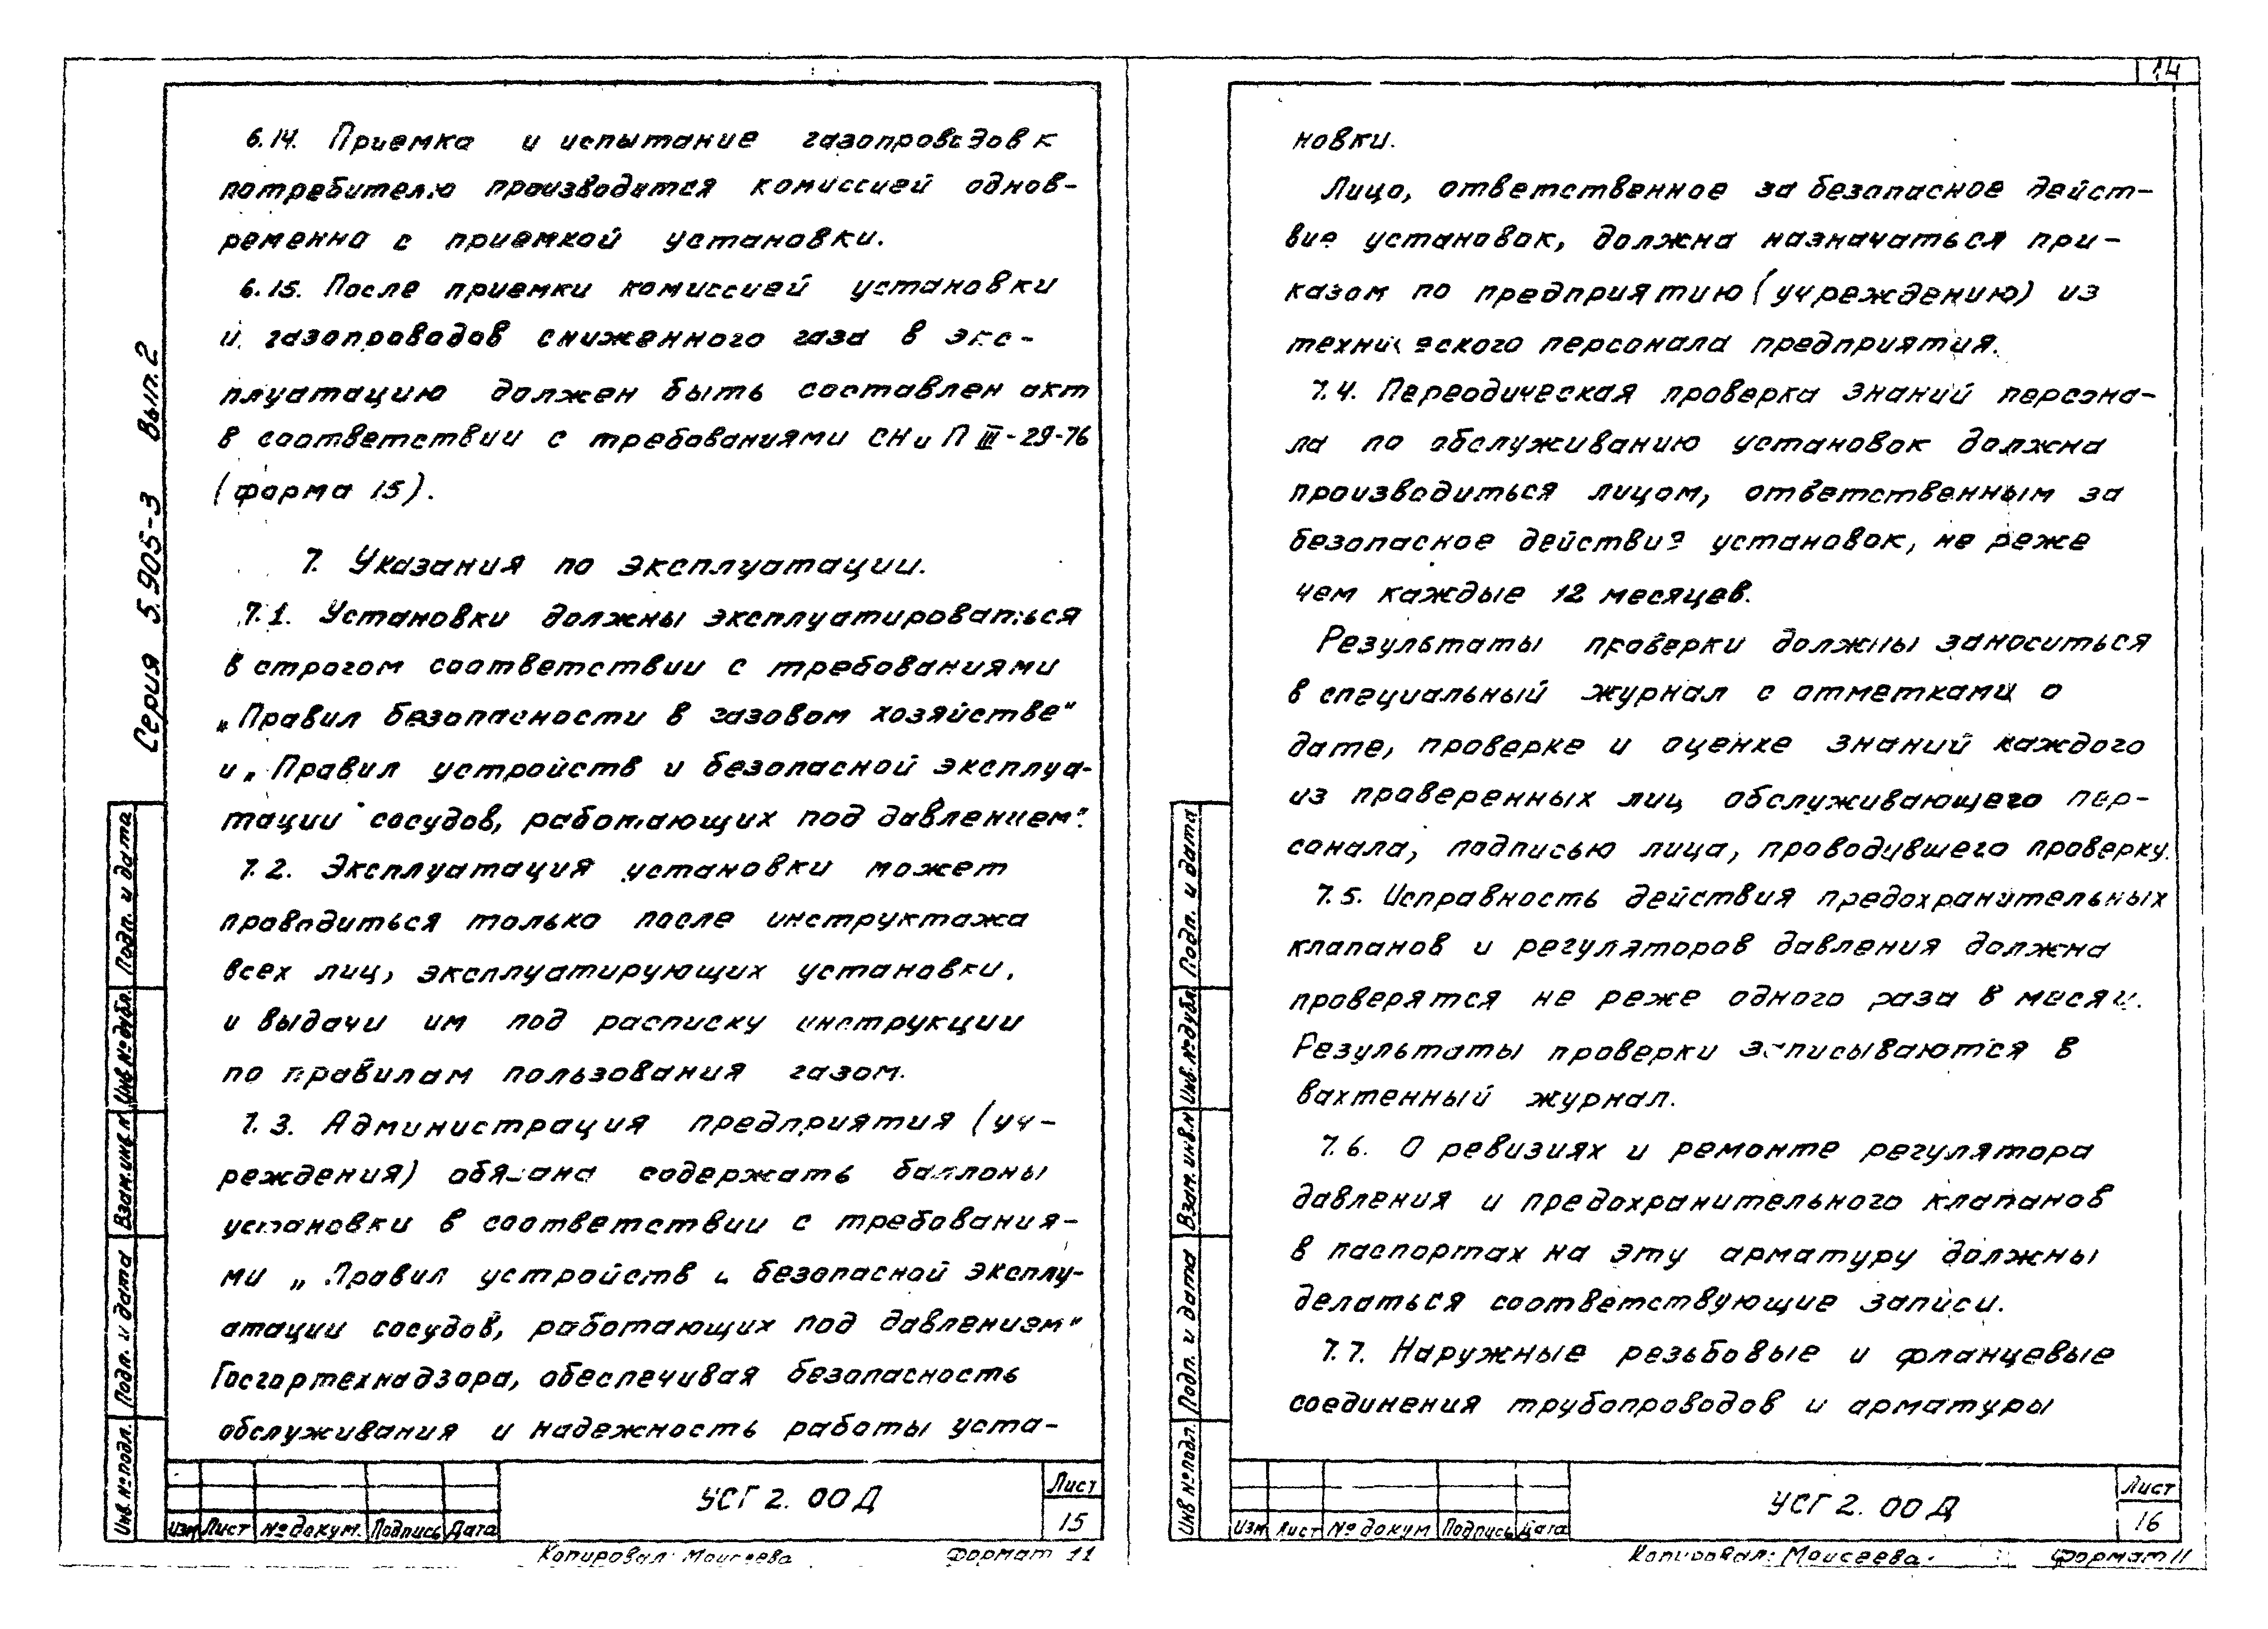 14
Серия 5.905-3 Вып.2
6.14. Приемка и испытание газопроводов к
потребителю производится комиссией однов-
ременно с приемкой установки.
6.15. После приемки комиссией установки
и газопроводов сниженного газа в экс-
плуатацию должен быть составлен акт
в соответствии с требованиями СНиП III-29-76
(форма 15).
7. Указания по эксплуатации.
7.1. Установки должны эксплуатироваться
в строгом соответствии с требованиями
„Правил безопасности в газовом хозяйстве“
и „Правил устройств и безопасной эксплуа-
тации сосудов, работающих под давлением“.
7.2. Эксплуатация установки может
проводиться только после инструктажа
всех лиц, эксплуатирующих установки,
и выдачи им под расписку инструкции
по правилам пользования газом.
7.3. Администрация предприятия (уч-
реждения) обязана содержать баллоны
установки в соответствии с требования-
ми „Правил устройств и безопасной эксплу-
атации сосудов, работающих под давлением“
Госгортехнадзора, обеспечивая безопасность
обслуживания и надежность работы уста-
Инв. № подл. Подп. и дата Взам. инв. № Инв № дубл. Подп. и дата
Изм Лист № докум. Подпись Дата
УСГ 2. 00 Д
Лист
15
Копировал: Моисеева Формат 11
новки.
Лицо, ответственное за безопасное дейст-
вие установок, должна назначаться при-
казом по предприятию (учреждению) из
технического персонала предприятия.
7.4. Переодическая проверка знаний персона-
ла по обслуживанию установок должна
производиться лицом, ответственным за
безопасное действие установок, не реже
чем каждые 12 месяцев.
Результаты проверки должны заноситься
в специальный журнал с отметками о
дате, проверке и оценке знаний каждого
из проверенных лиц обслуживающего пер-
сонала, подписью лица, проводившего проверку.
7.5. Исправность действия предохранительных
клапанов и регуляторов давления должна
проверятся не реже одного раза в месяц.
Результаты проверки записываются в
вахтенный журнал.
7.6. О ревизиях и ремонте регулятора
давления и предохранительного клапанов
в паспортах на эту арматуру должны
делаться соответствующие записи.
7.7. Наружные резьбовые и фланцевые
соединения трубопроводов и арматуры
Инв № подл. Подп. и дата Взам. инв. № Инв. № дубл. Подп. и дата
Изм Лист № докум Подпись Дата
УСГ 2. 00 Д
Лист
16
Копировал: Моисеева Формат 11